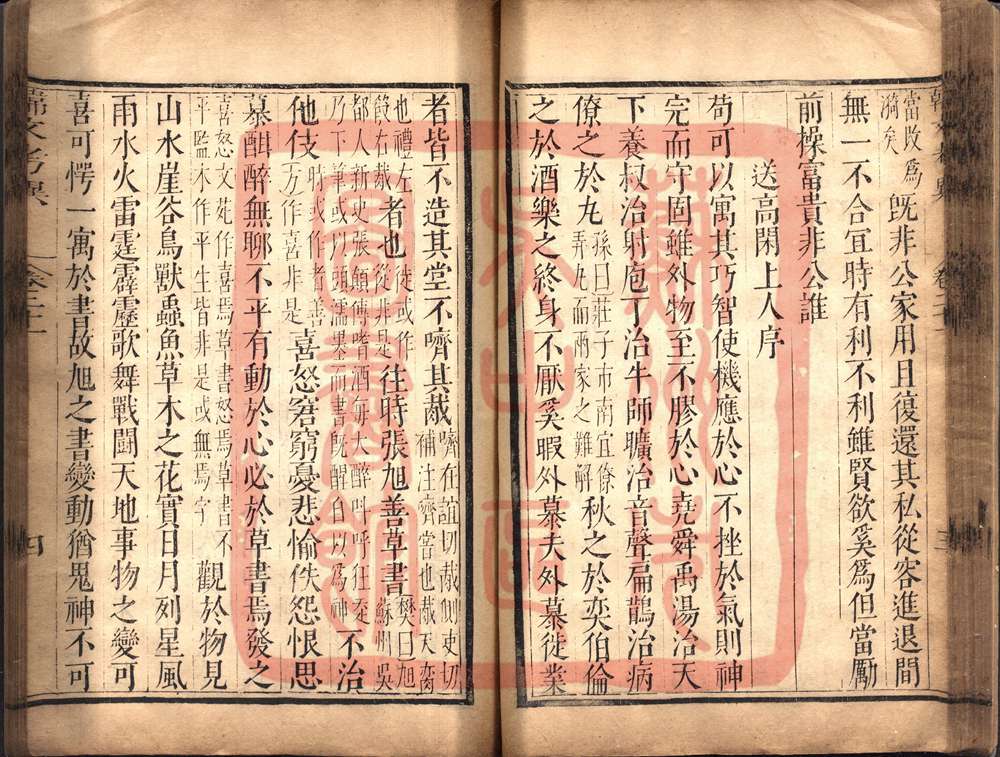 當改爲
漪矣
旣非公家用且復還其私從容進退間
無一不合宜時有利不利雖賢欲奚爲但當勵
前操富貴非公誰
送高閑上人序
苟可以寓其巧智使機應於心不挫於氣則神
完而守固雖外物至不膠於心堯舜禹湯治天
下養叔治射庖丁治牛師曠治音聲扁鵲治病
僚之於丸
孫曰莊子市南宜僚
弄丸而兩家之難解
秋之於奕伯倫
之於酒樂之終身不厭奚暇外慕夫外慕徙業
者皆不造其堂不嚌其胾
嚌在詣切胾側吏切
補注嚌嘗也胾大臠
也禮左
殽右胾
者也
徙或作
從非是
往時張旭善草書
樊曰旭
蘇州吳
都人新史張顛傳嗜酒每大醉呼呼狂走
乃下筆或以頭濡墨而書旣醒自以爲神
不治
他伎
方作喜非是
喜怒窘窮憂悲愉佚怨恨思
慕酣醉無聊不平有動於心必於草書焉發之
喜怒文苑作喜焉草書怒焉草書不
平監本作平生皆非是或無焉字
觀於物見
山水崖谷鳥獸蟲魚草木之花實日月列星風
雨水火雷霆霹靂歌舞戰鬭天地事物之變可
喜可愕一寓於書故旭之書變動猶鬼神不可
四